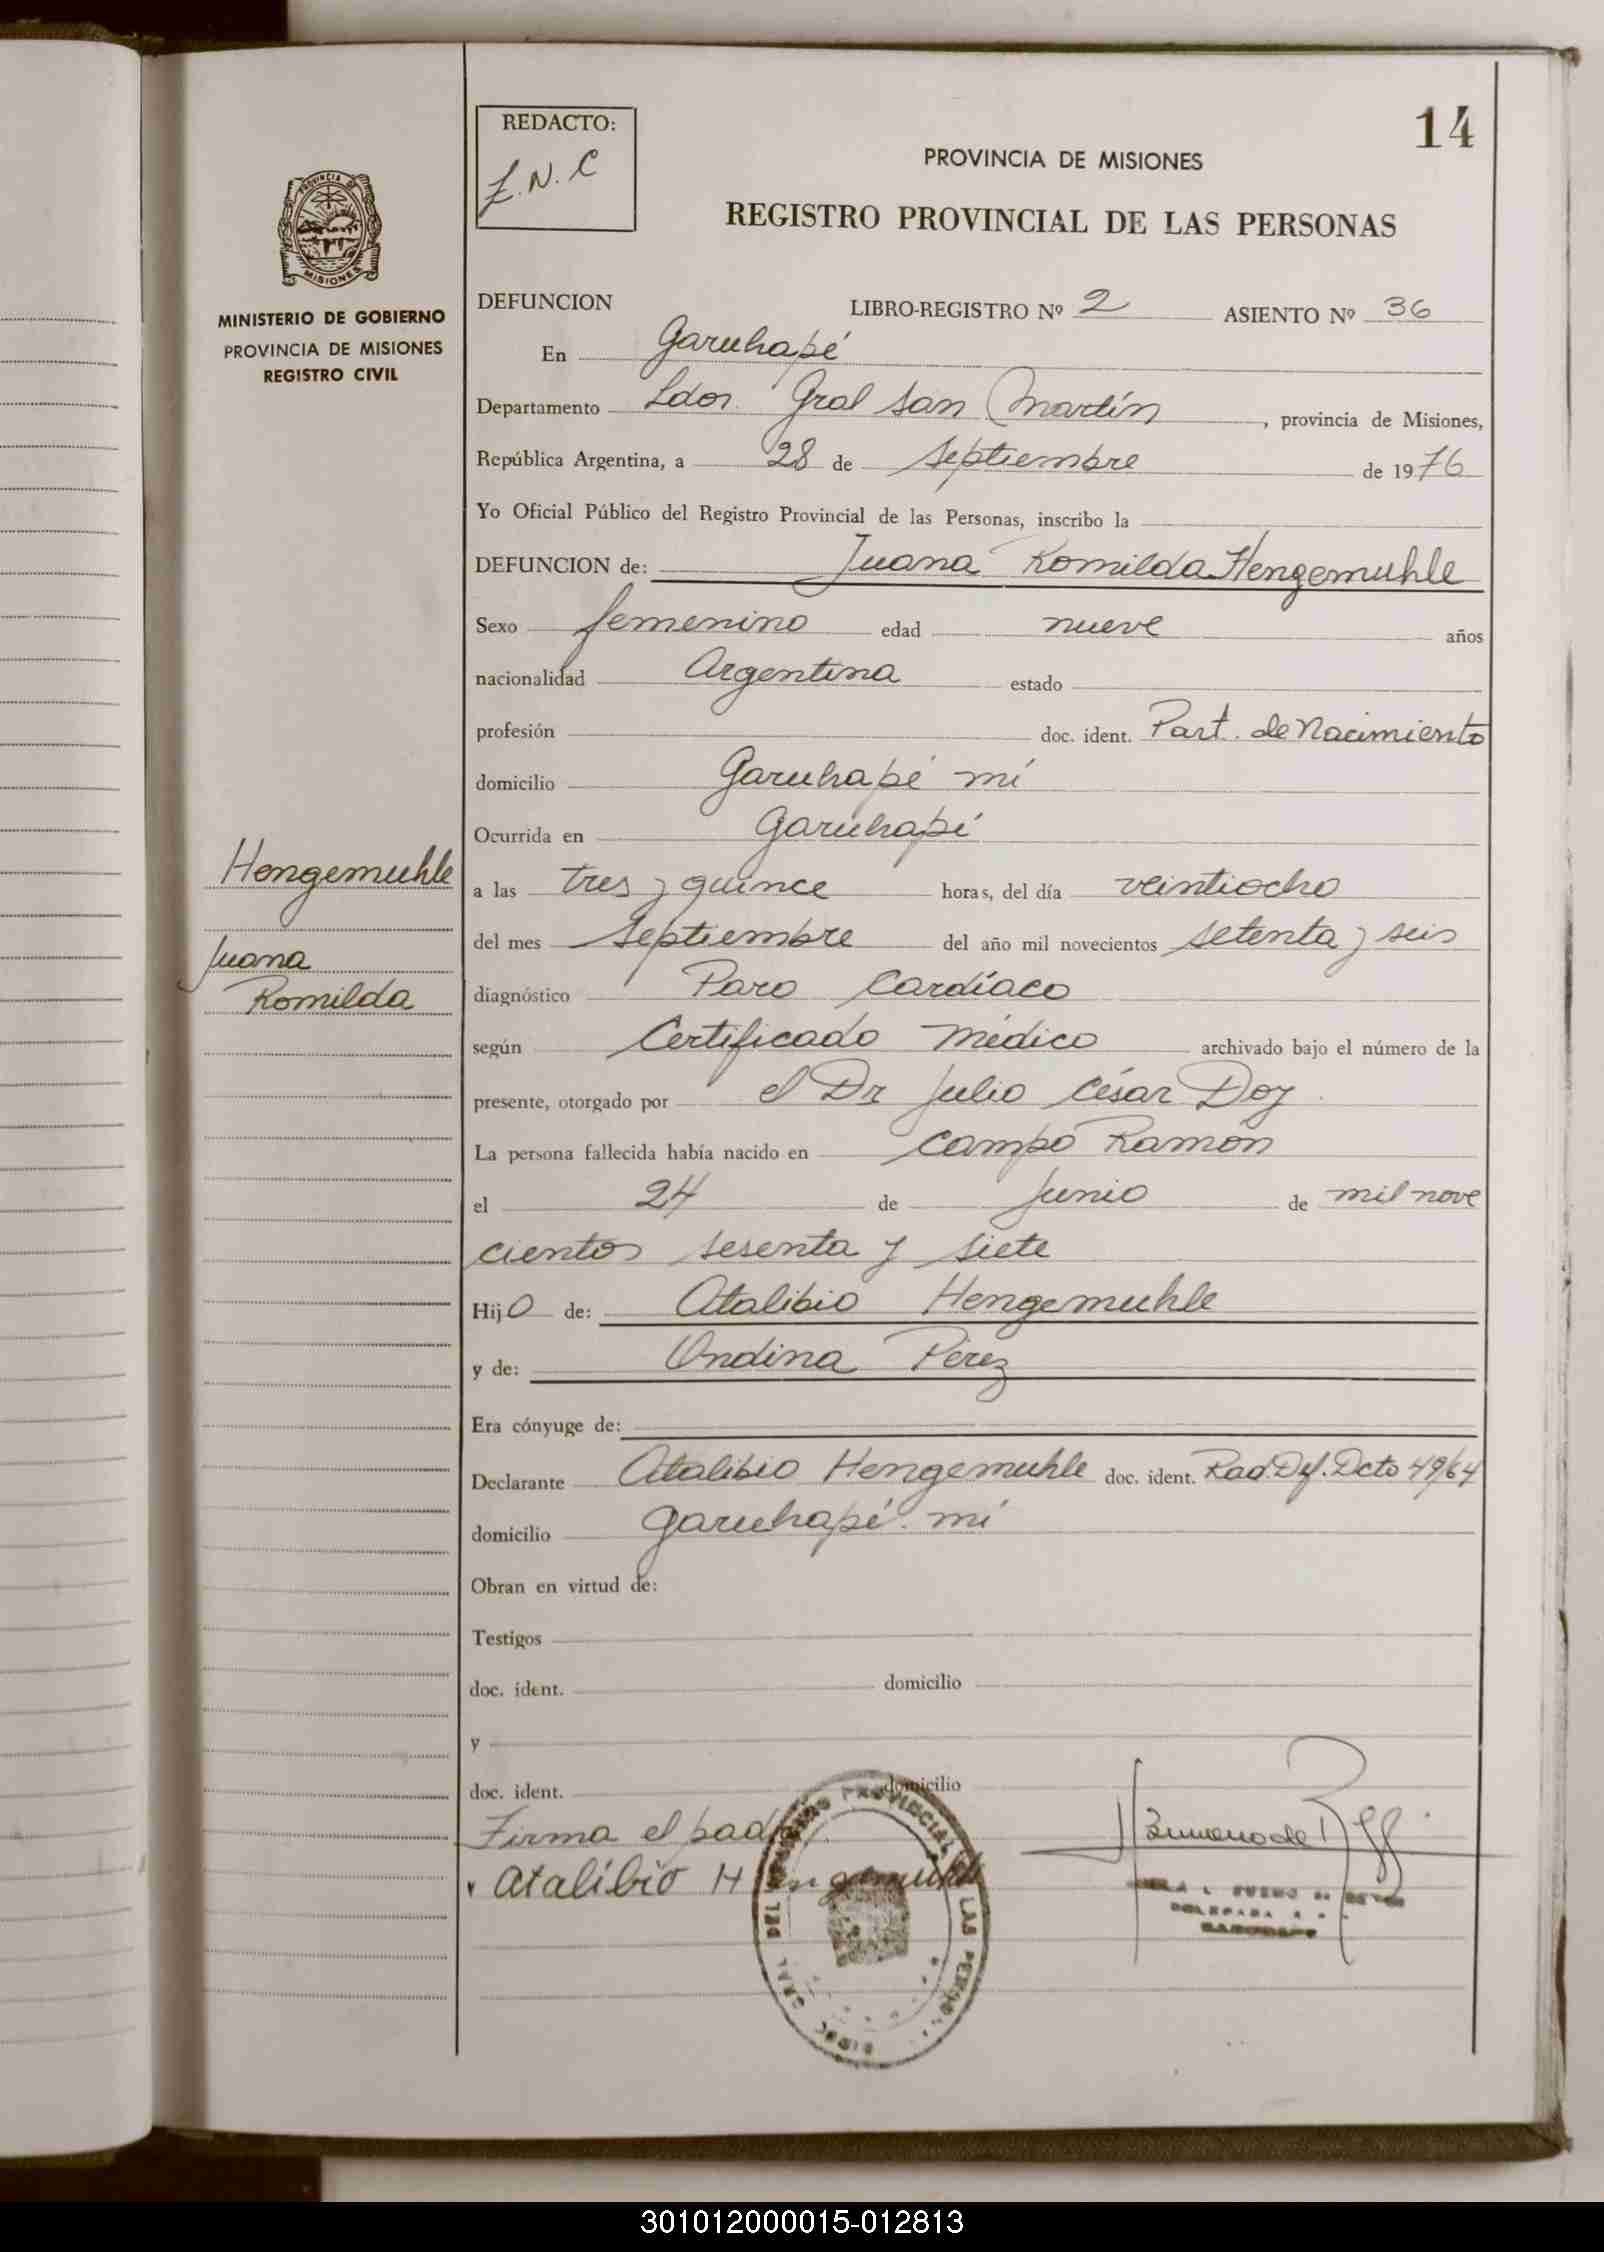 14
REDACTO:
Z.N.C
PROVINCIA DE MISIONES
REGISTRO PROVINCIAL DE LAS PERSONAS
PROVINCIA DE
MISIONES
MINISTERIO DE GOBIERNO
PROVINCIA DE MISIONES
REGISTRO CIVIL
DEFUNCION LIBRO-REGISTRO Nº 2 ASIENTO Nº 36
En Garuhapé
Departamento Ldor. Gral San Martín, provincia de Misiones,
República Argentina, a 28 de Septiembre de 1976
Yo Oficial Público del Registro Provincial de las Personas, inscribo la
DEFUNCION de: Juana Romilda Hengemuhle
Sexo femenino edad nueve años
nacionalidad Argentina estado
profesión doc. ident. Part. de Nacimiento
domicilio Garuhapé mí
Ocurrida en Garuhapé
Hengemuhle
a las tres y quince horas, del día veintiocho
del mes Septiembre del año mil novecientos setenta y seis
Juana
Romilda
diagnóstico Paro Cardíaco
según Certificado Médico archivado bajo el número de la
presente, otorgado por el Dr Julio César Doy
La persona fallecida había nacido en Campo Ramón
el 24 de Junio de mil nove
cientos sesenta y siete
HijO de: Atalibio Hengemuhle
y de: Ondina Pérez
Era cónyuge de:
Declarante Atalibio Hengemuhle doc. ident. Rad.Def. Dcto 4964
domicilio Garuhapé. mí
Obran en virtud de:
Testigos
doc. ident. domicilio
y
doc. ident. domicilio
Firma el padre
Atalibio Hengemuhle
PROVINCIAL
DEL
LAS
GRAL
DELEGADA
GARUHAPE
301012000015-012813